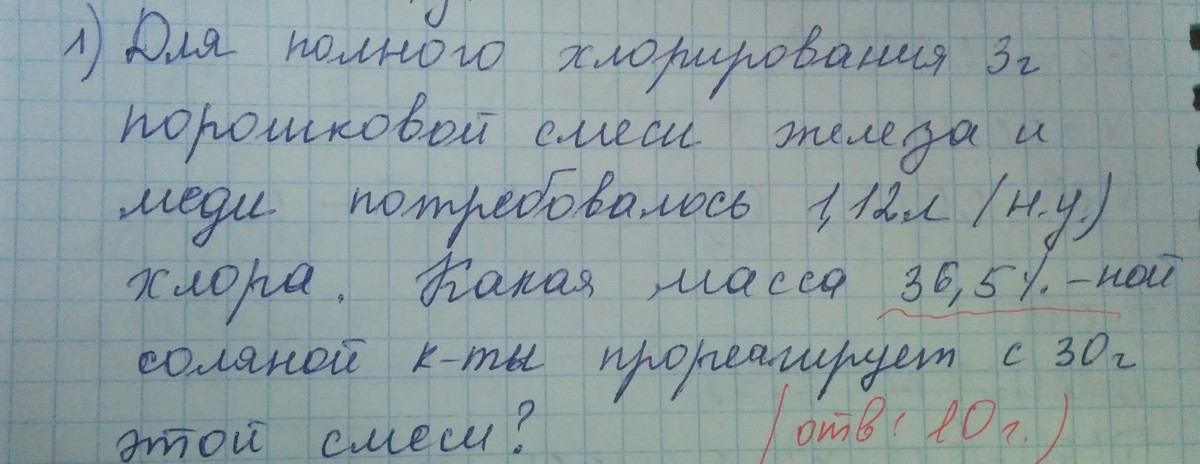 1) Для полного хлорирования 3г
порошковой смеси железа и
меди потребовалось 1,12л (н.у.)
хлора. Какая масса 36,5%-ной
соляной к-ты прореагирует с 30г
этой смеси? (отв: 10г.)